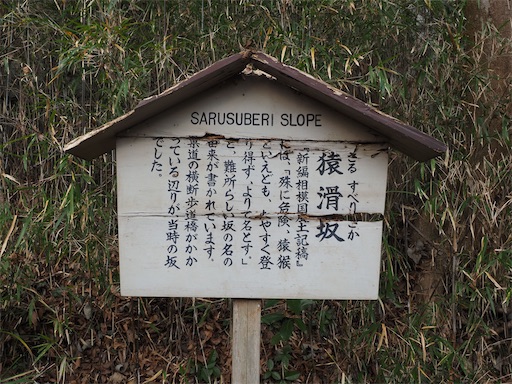 SARUSUBERI SLOPE
さる すべり ざか
猿滑坂
『新編相模国 土記稿』
には、「殊に危険、猿猴
といえども、 やすく登
り得ず、よりて名とす。」
と、難所らしい坂の名の
由来が書かれています。
県道の横断歩道橋がかか
っている辺りが、当時の坂
でした。